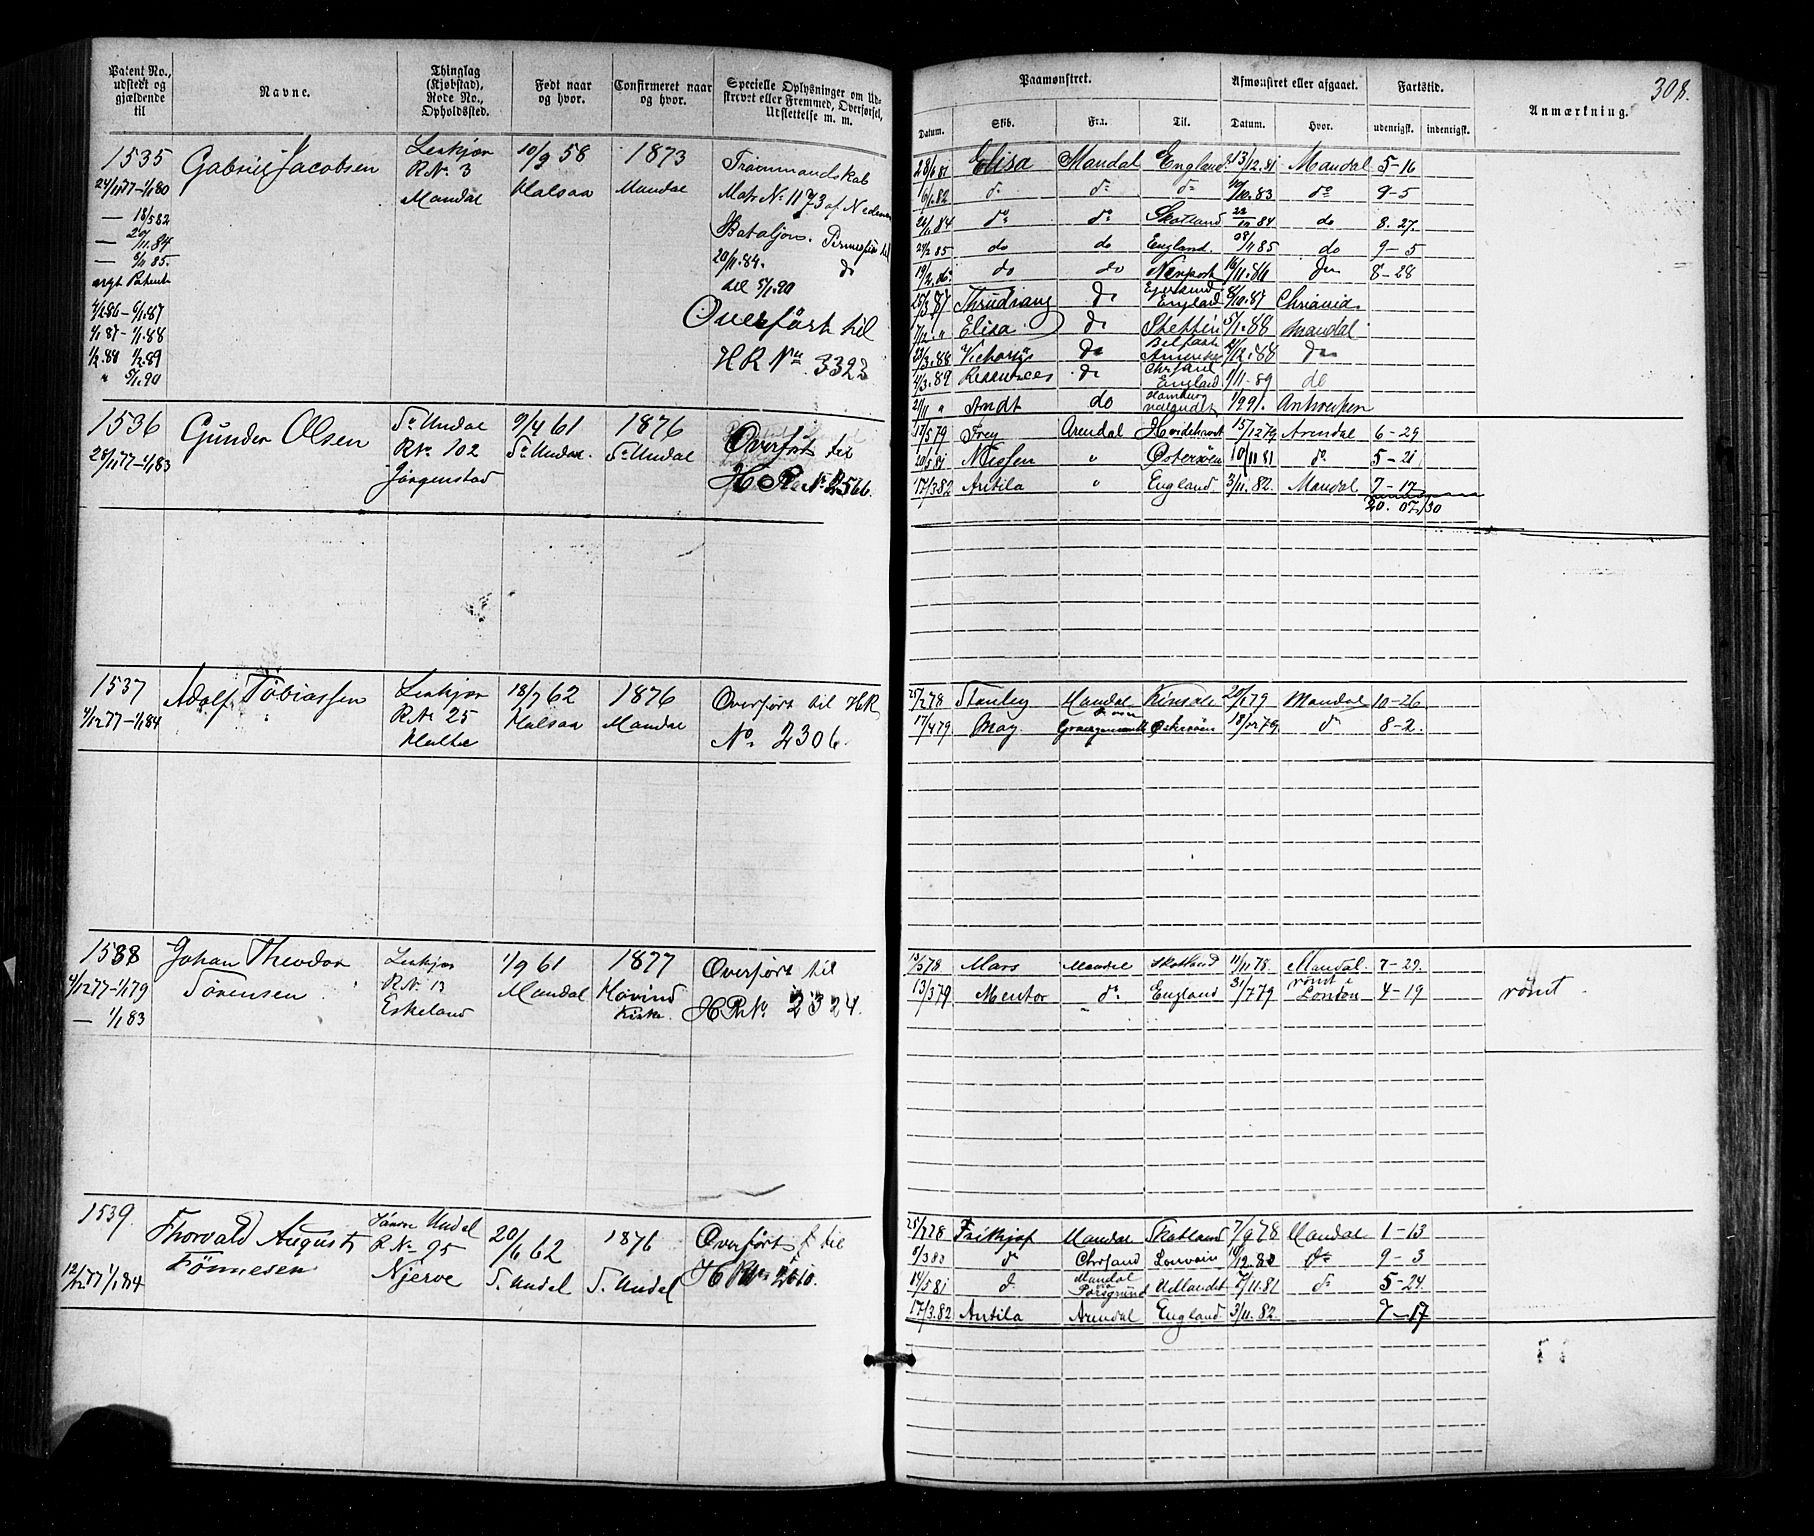 Patent No., udstedt og gjældende til
Navne.
Thinglag (Kjøbstad), Rode No., Opholdssted.
Født naar og hvor.
Confirmeret naar og hvor.
Specielle Oplysninger om Udskrevet eller Fremmed, Overførsel, Udslettelse m. m.
Paamønstret.
Afmønstret eller afgaaet.
Fartstid.
Anmærkning.
308.
Datum.
Skib.
Fra.
Til.
Datum.
Hvor.
udenrigsk.
indenrigsk.
1535
24/11 77-1/1 80
— 18/5 82
— 20/11 84
— 5/1 85.
4/1 86 - 6/1 87
1/1 87 - 1/1 88
1/2 88 1/2 89
" 5/1 90
Gabriel Jacobsen
R.No. 3
Mandal
10/9 58
Halsaa
1873
Mandal
Matr No 1173 af
Bataljon.
20/11 84. do
til 5/1 90
Overført til
HR No 3323
28/6 81 Elisa Mandal England 13/12.81 Mandal 5-16
do do do do 9-5
24/1 84 do do Skotland 22/12 84 do 8.27.
24/2 85 do do England 08/11 85 do 9-5
do do 16/11.86 do 8-28
25/3 87 do England 8/10.87 Chriania
7/12 " Elisa do Stettin 5/1.88 Mandal
23/3.88 do Belfast 2/12.88 do
4/3.89 Ressources do England 1/11-89 do
21/11 " Arndt do Hamburg 1/9 91. Antwerpen
1536
28/11 77-1/1 83
Gunder Olsen
So Undal
R No 102
Jørgenstad
9/4 61
So Undal.
1876
So Undal
Overført til
H R No. 2566.
12/5 79 Frey Arendal 15/12 79 Arendal 6-29
20/5 81 Nissen " Østersøen 10/11 81 do 5-21
17/3 82 Antila " England 3/11.82. Mandal 7-17
20. 07/30
1537
4/12 77-1/1 84
Adolf Tobiassen
R No 25
18/7 62
Halsaa
1876
Mandal
Overført til HR
No. 2306.
25/2 78 Stanley Mandal Kinsale 20/1 79 Mandal 10-26
17/4 79 May Østersøen 18/12 79 do 8-2.
1538
4/12 77-1/1 79
— 1/1 83
Johan Theodor
Sørensen
R No 13
Eskeland
1/9 61
Mandal
1877
Høvind
Kirke.
Overført til
H R No. 2324.
13/3 78 Mars Mandal Skotland 11/11 78. Mandal 7-29.
13/3 79 Mentor do England 31/7 79 rømt i London 4-19
rømt
1539.
12/12 77 1/1 84
Thorvald August
Tönnesen
Søndre Undal
R No 95
Njerve
20/6 62
S. Undal
1876
S. Undal
Overført til
H R No. 2610.
25/2 78 Fritjof Mandal Skotland 7/9 78 Mandal 1-13
5/3 80 do Chrsand 10/12.80 do 9-3
14/5 81 do Mandal via Porsgrund Udlandet 7/11.81 do 5-24
17/3.82 Antila Arendal England 3/11.82. 7-17